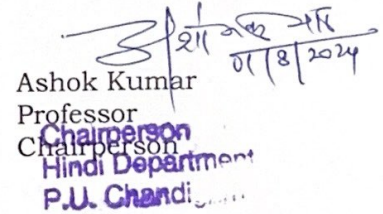 अशोक कुमार
01/8/2024
Ashok Kumar
Professor
Chairperson
Chairperson
Hindi Department
P.U. Chandi